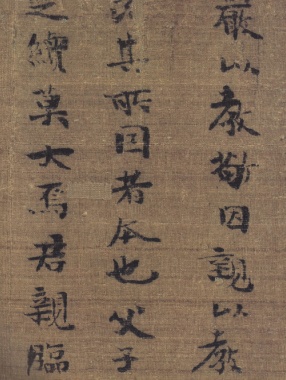 嚴以教敬因親以教
其所因者本也父子
之續莫大焉君親臨